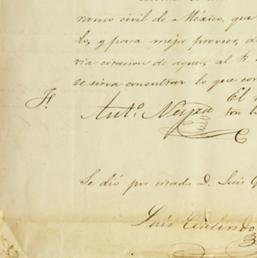 ramo civil de México, que
lo, y para mejor proveer, d
ria creacion de agua, al
se sirva consultar lo que con
F.
Ant.º Neyra El
ton l
Se dió por citado D. Luis G
Luis Galindo